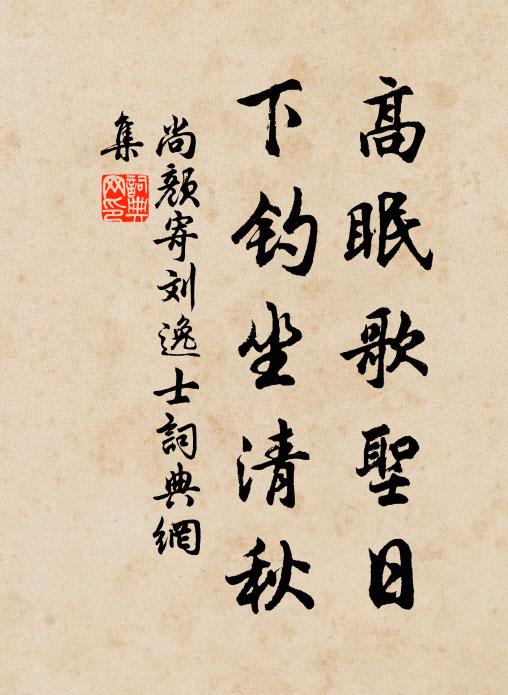 高眠歌聖日
下釣坐清秋
尚顏寄刘逸士詞典網
集
詞典
网印